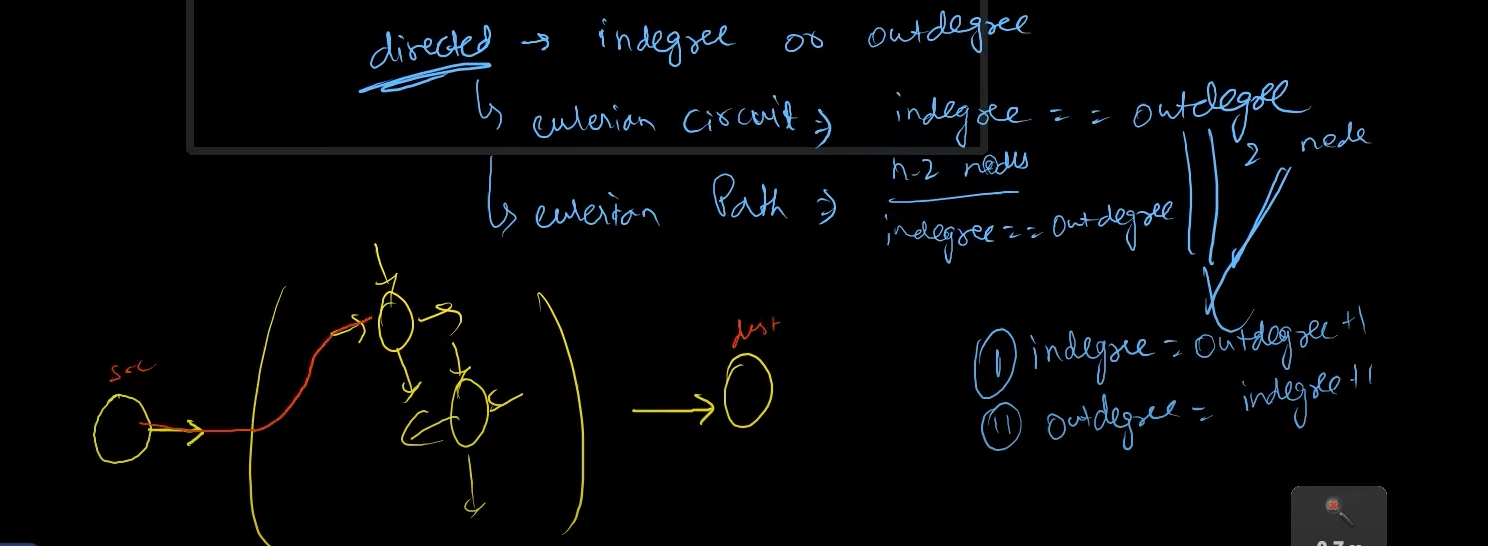 directed → indegree or outdegree
↳ eulerian circuit ⇒ indegree == outdegree
↳ eulerian Path ⇒ n-2 nodes
indegree == outdegree
2 node
I indegree = outdegree +1
II outdegree = indegree +1
src
dest